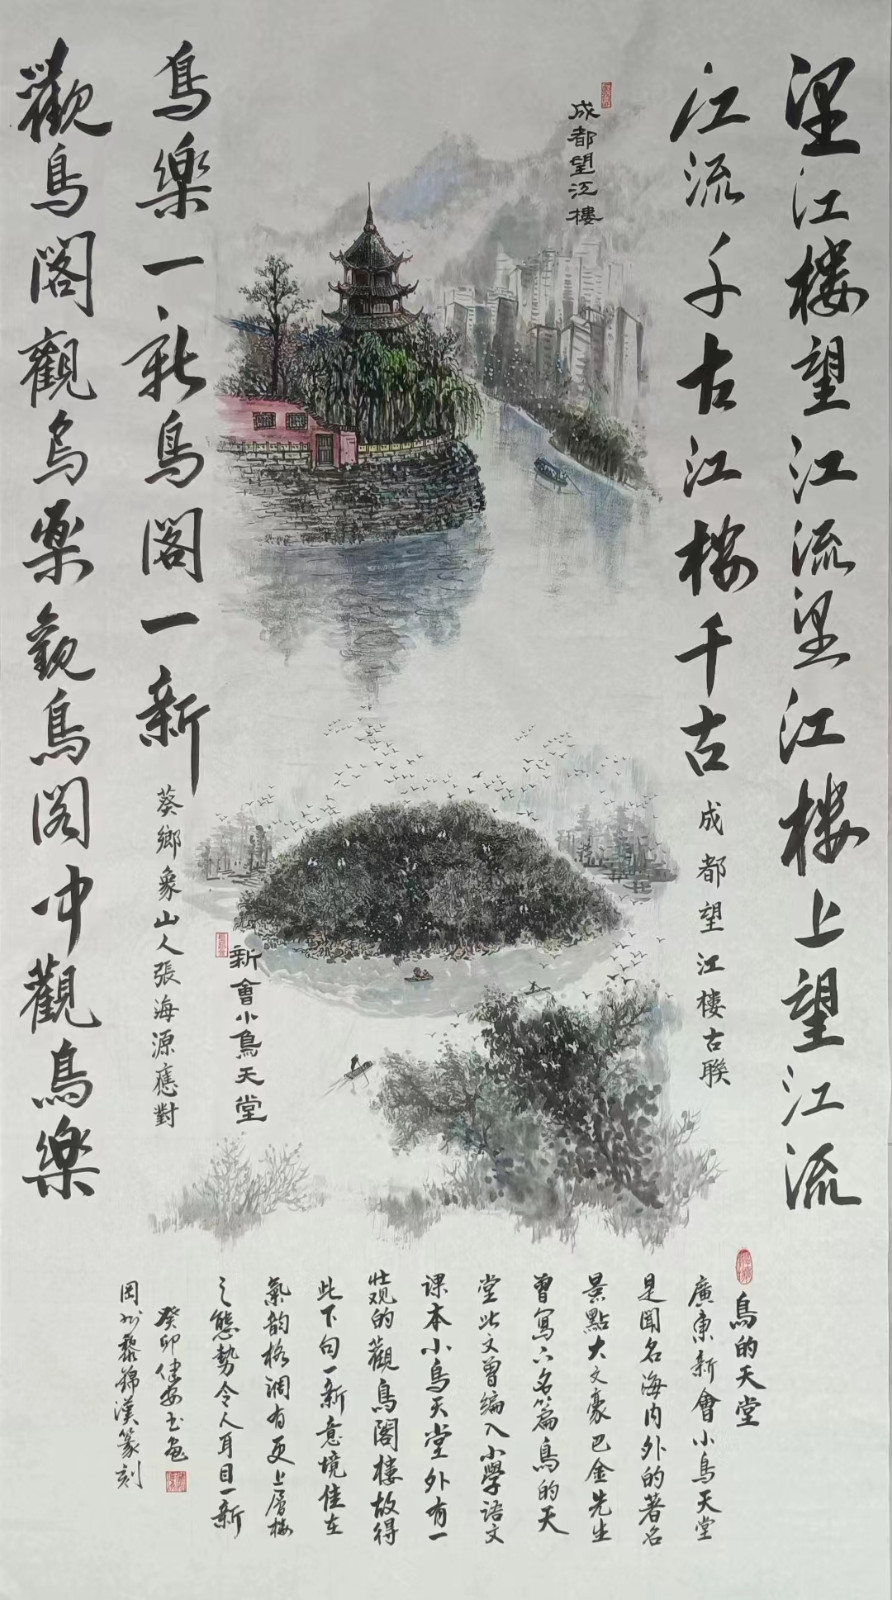 望江樓望江流望江樓上望江流
江流千古江樓千古
成都望江樓古聯
成都望江樓
鳥樂一新鳥閣一新
葵鄉象山人張海源應對
觀鳥閣觀鳥樂觀鳥閣中觀鳥樂
新會小鳥天堂
鳥的天堂
廣東新會小鳥天堂
是聞名海内外的著名
景點大文豪巴金先生
曾寫下名篇鳥的天
堂此文曾编入小學语文
课本小鸟天堂外有一
壮观的觀鳥閣樓故得
此下句一新意境佳在
氣韵格调有更上層樓
之態勢令人耳目一新
癸卯健安书画
岡州黎錦漢篆刻